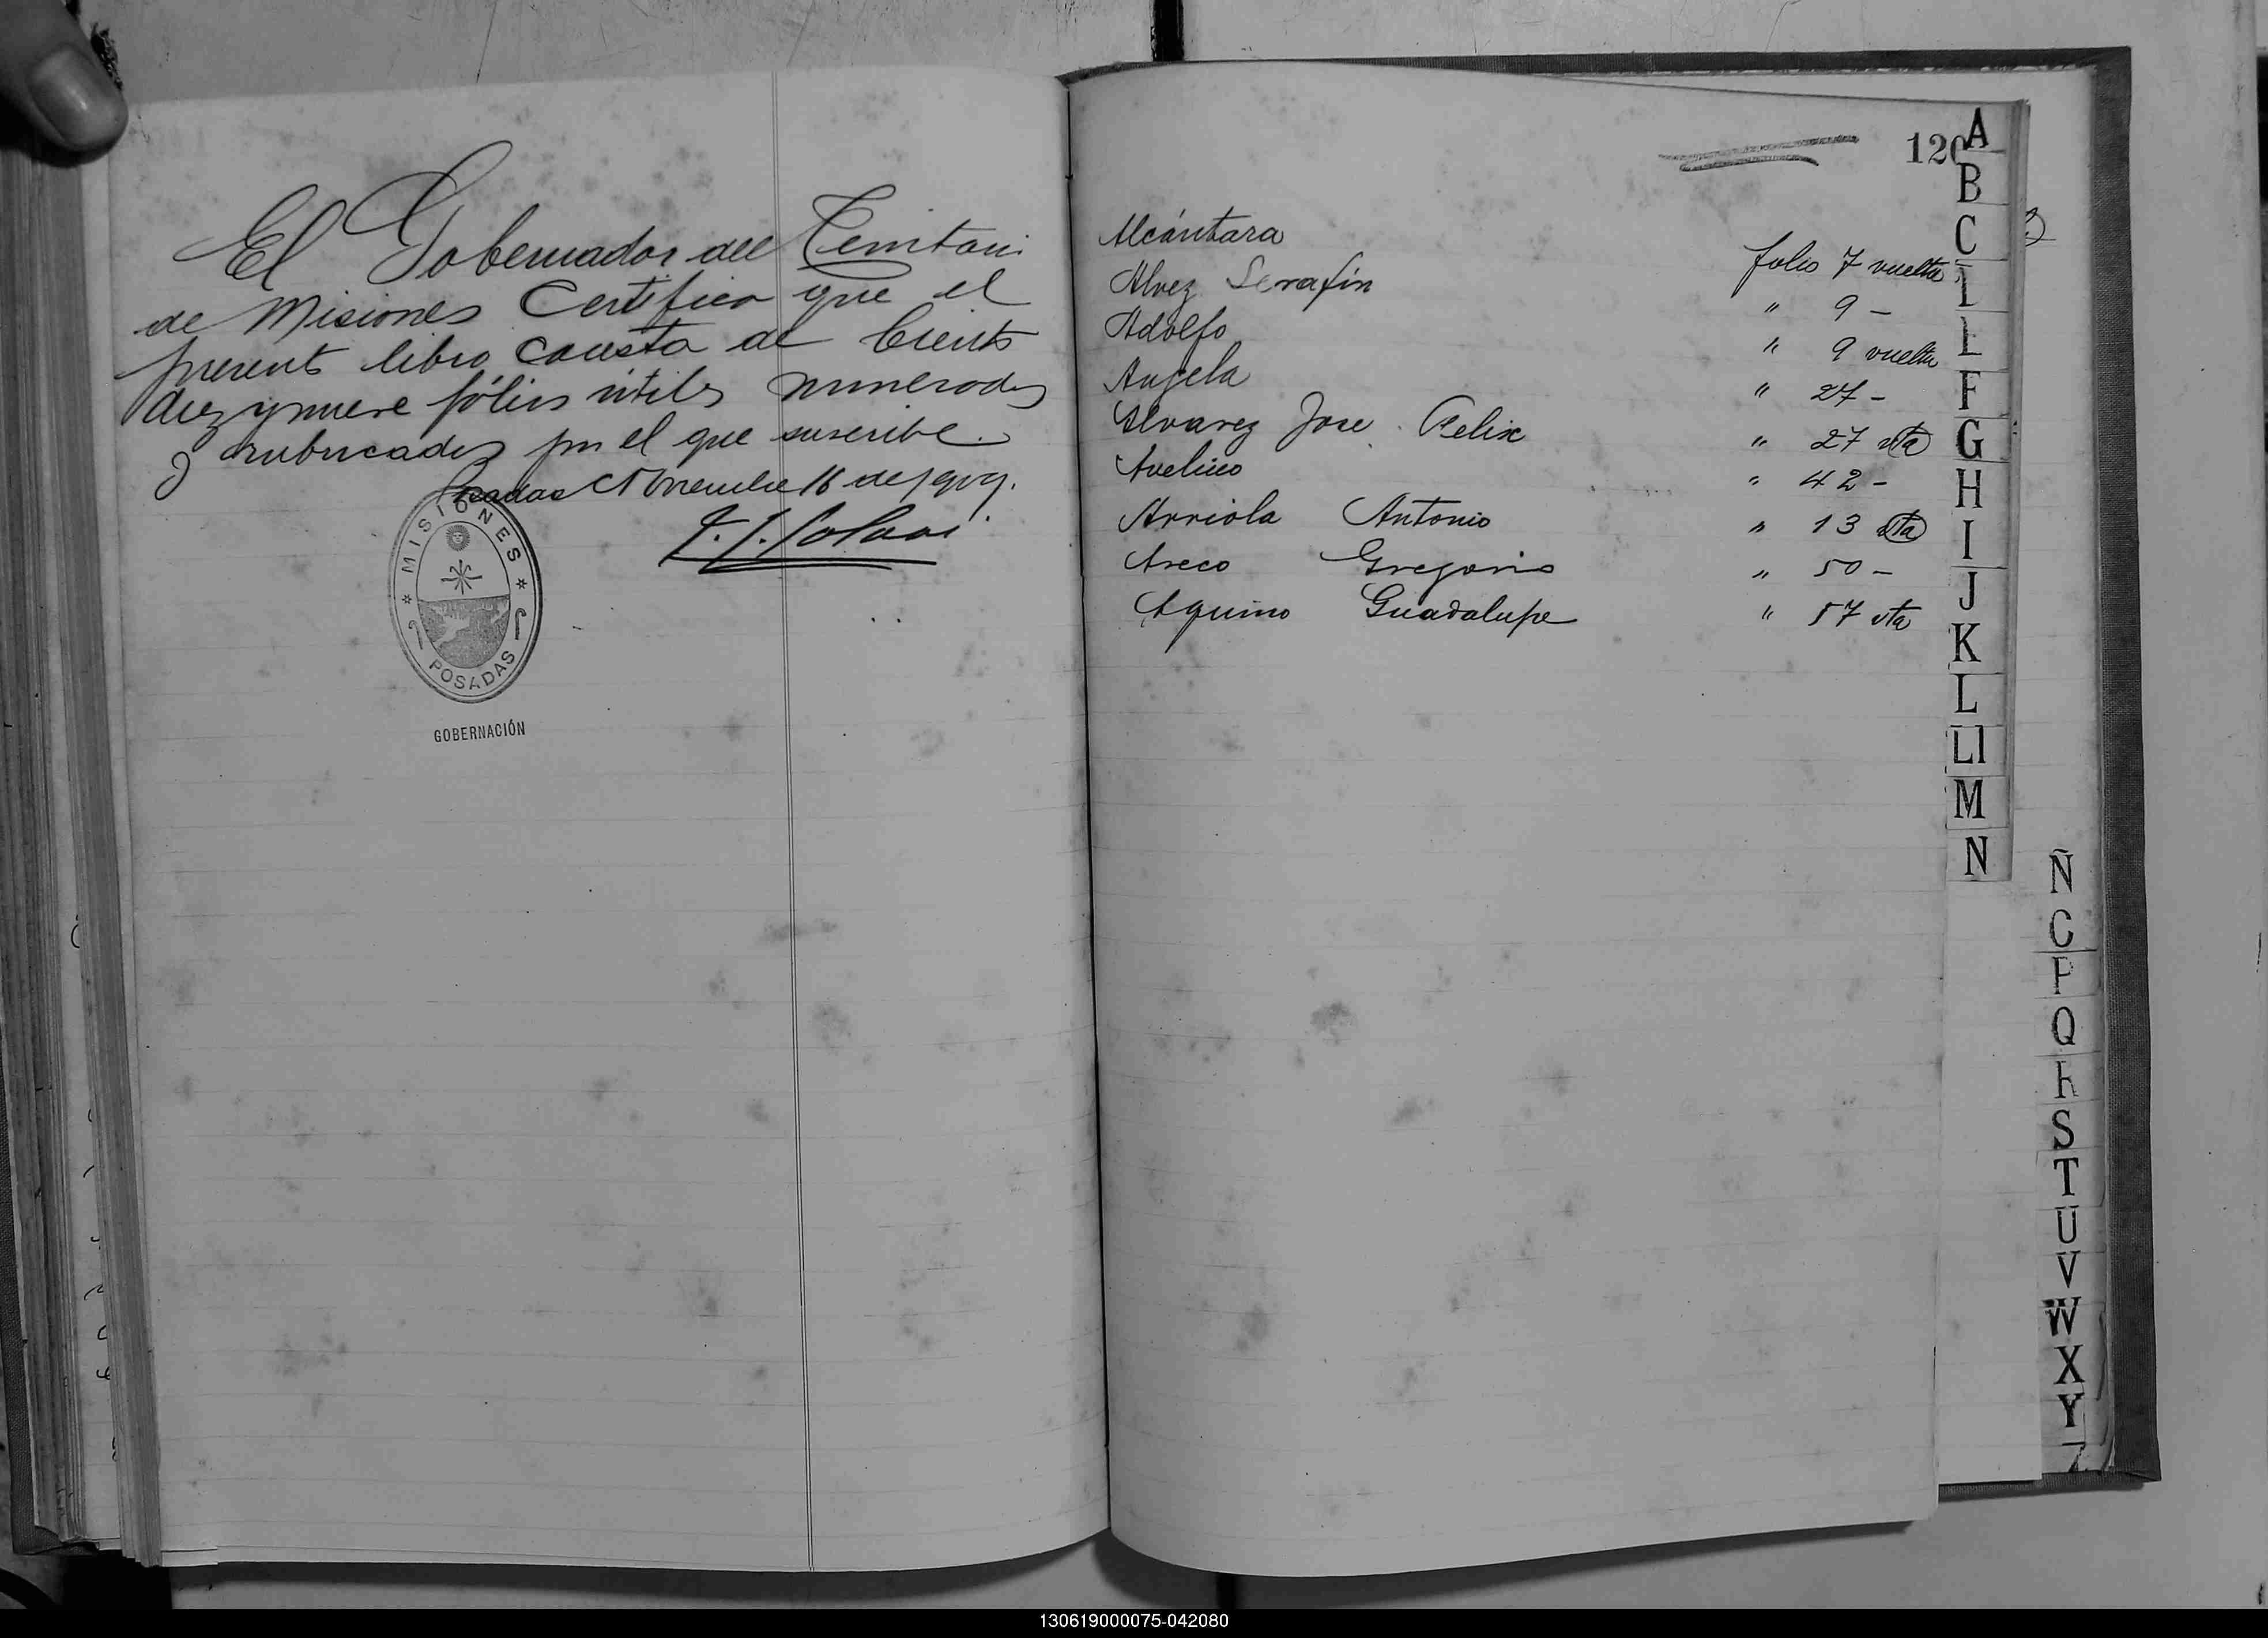 El Gobernador del Territorio
de Misiones Certifica que el
present libro consta de Ciento
diez y nueve fólios útiles numerados
y rubricados por el que suscribe.
Posadas Noviembre 16 de 1909.
MISIONES
POSADAS
GOBERNACIÓN
120
Alcántara folio 7 vuelta
Alvez Serafin " 9 -
Adolfo " 9 vuelta
Angela " 27 -
Alvarez Jose Felix " 27 vta
Avelino " 42 -
Arriola Antonio " 13 vta
Areco Gregorio " 50 -
Aquino Guadalupe " 57 vta
A
B
C
F
G
H
I
J
K
L
Ll
M
N
Ñ
P
Q
R
S
T
U
V
W
X
Y
130619000075-042080